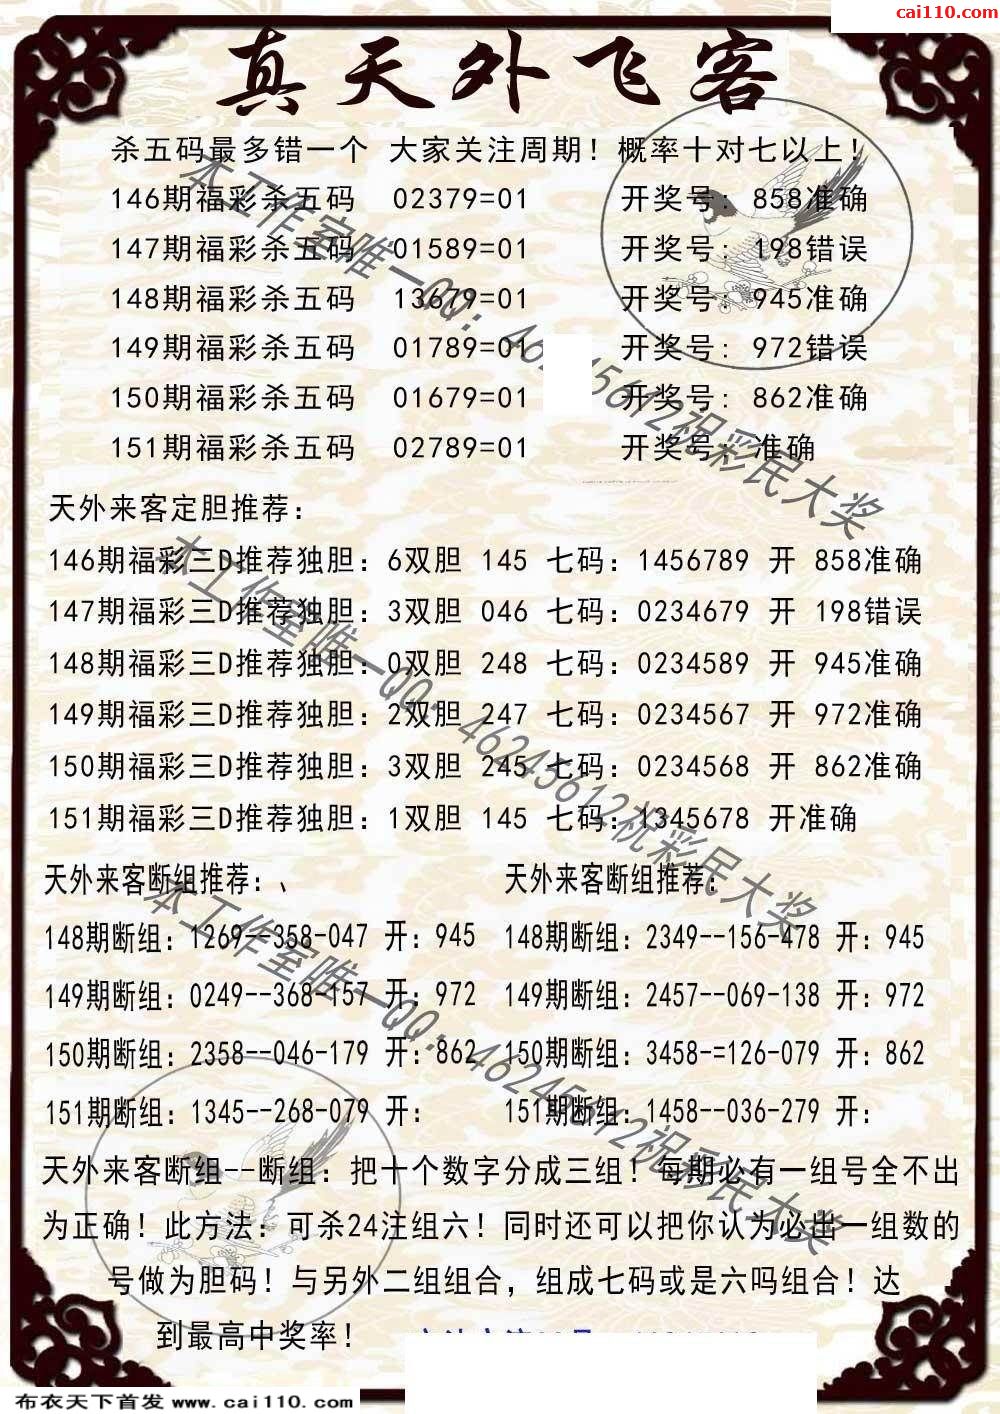 cai110.com
真天外飞客
杀五码最多错一个 大家关注周期！概率十对七以上！
146期福彩杀五码 02379=01 开奖号：858准确
147期福彩杀五码 01589=01 开奖号：198错误
148期福彩杀五码 13679=01 开奖号：945准确
149期福彩杀五码 01789=01 开奖号：972错误
150期福彩杀五码 01679=01 开奖号：862准确
151期福彩杀五码 02789=01 开奖号：准确
天外来客定胆推荐：
146期福彩三D推荐独胆：6双胆 145 七码：1456789 开 858准确
147期福彩三D推荐独胆：3双胆 046 七码：0234679 开 198错误
148期福彩三D推荐独胆：0双胆 248 七码：0234589 开 945准确
149期福彩三D推荐独胆：2双胆 247 七码：0234567 开 972准确
150期福彩三D推荐独胆：3双胆 245 七码：0234568 开 862准确
151期福彩三D推荐独胆：1双胆 145 七码：1345678 开准确
天外来客断组推荐：、 天外来客断组推荐：
148期断组：1269--358-047 开：945 148期断组：2349--156-478 开：945
149期断组：0249--368-157 开：972 149期断组：2457--069-138 开：972
150期断组：2358--046-179 开：862 150期断组：3458-=126-079 开：862
151期断组：1345--268-079 开： 151期断组：1458--036-279 开：
天外来客断组--断组：把十个数字分成三组！每期必有一组号全不出
为正确！此方法：可杀24注组六！同时还可以把你认为必出一组数的
号做为胆码！与另外二组组合，组成七码或是六吗组合！达
到最高中奖率！
本工作室唯一QQ：46245612祝彩民大奖
本工作室唯一QQ：46245612祝彩民大奖
本工作室唯一QQ：46245612祝彩民大奖
布衣天下首发 www.cai110.com